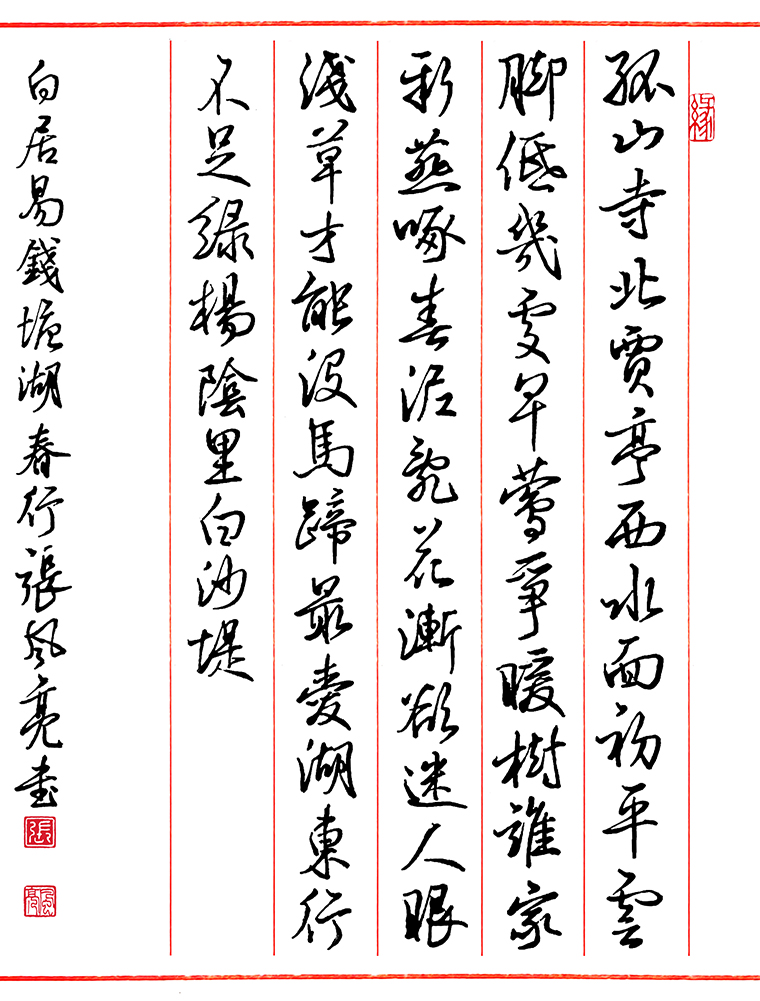 缘
孤山寺北贾亭西水面初平雲
脚低幾處早莺爭暖樹誰家
新燕啄春泥亂花漸欲迷人眼
浅草才能沒馬蹄最愛湖東行
不足緑楊陰里白沙堤
白居易錢塘湖春行張风亮書
張
风亮